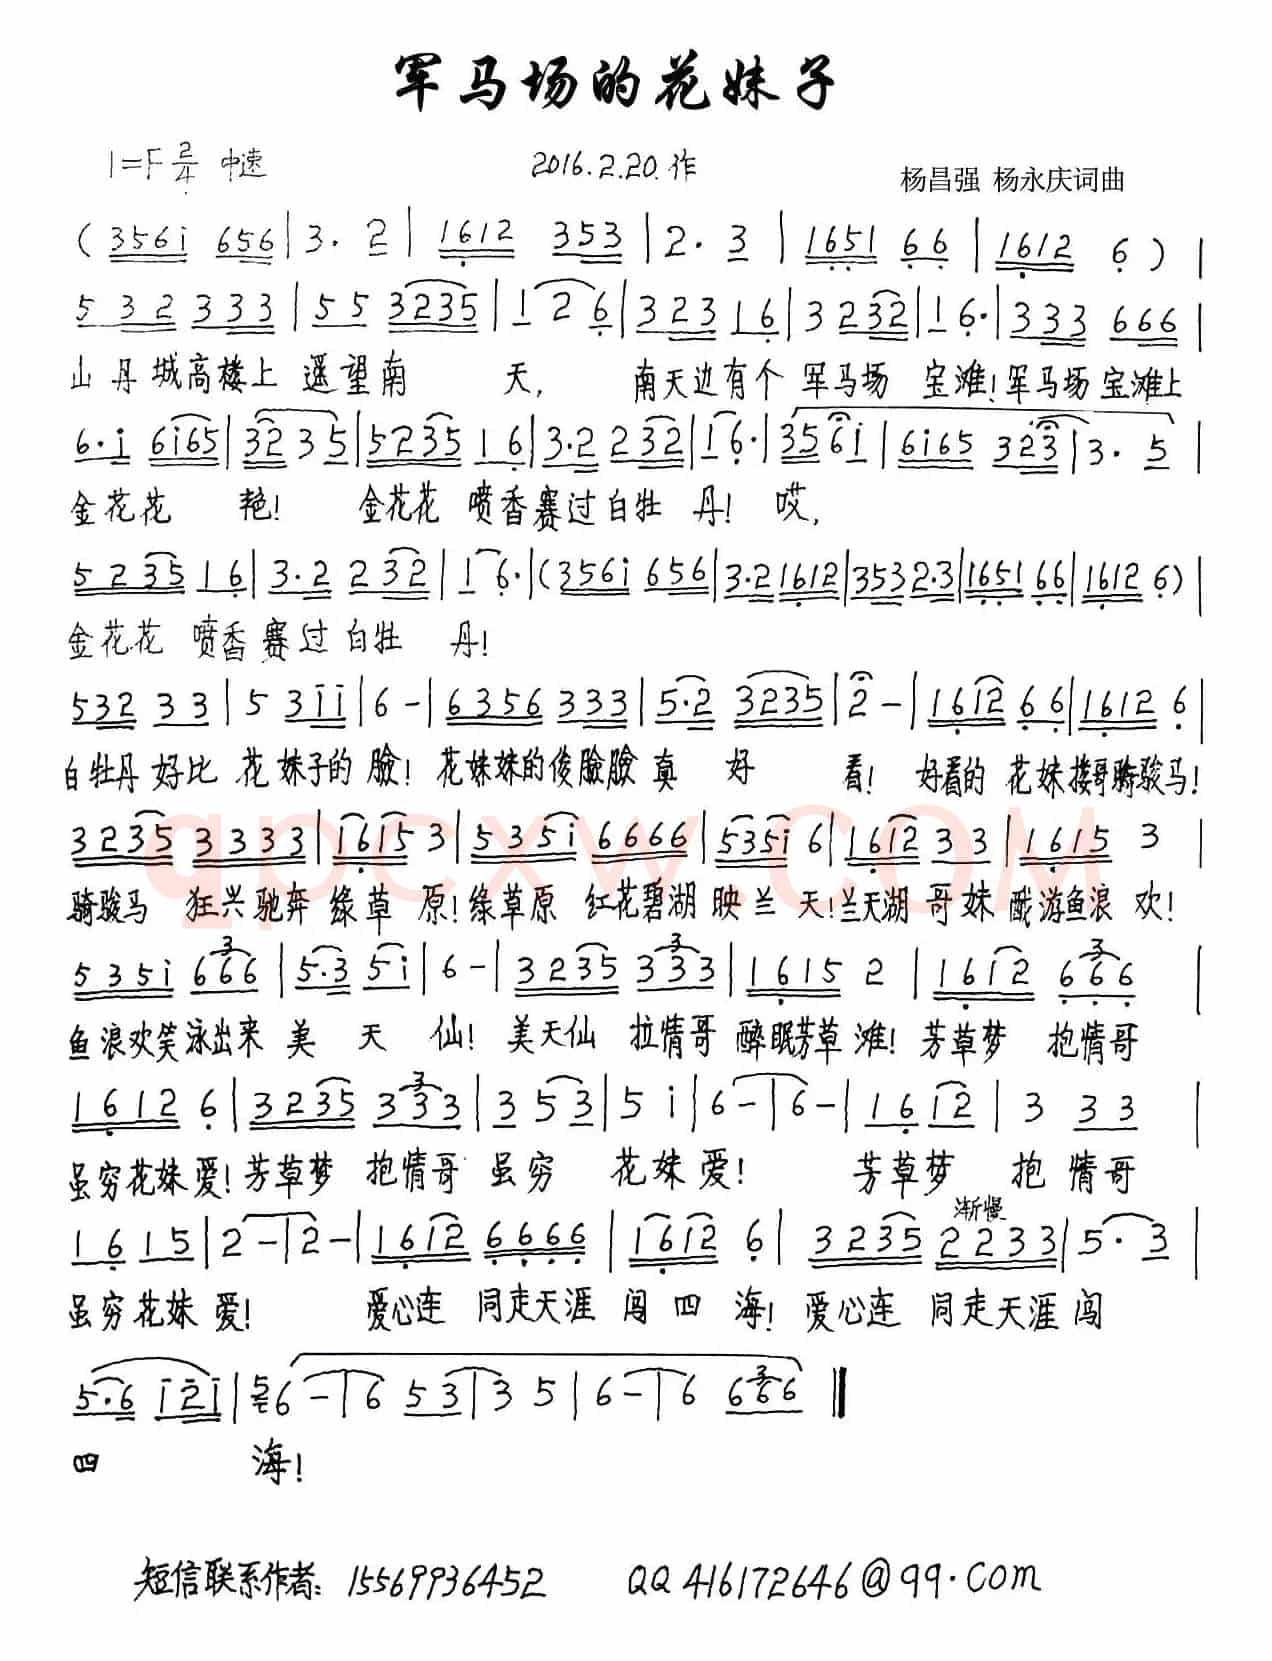 军马场的花妹子
1=F 2/4 中速 2016.2.20.作 杨昌强 杨永庆词曲
( 3561 656 | 3. 2 | 1612 353 | 2. 3 | 1651 6 6 | 1612 6 ) |
5 32 333 | 5 5 3235 | 1 2 6 | 3 23 1 6 | 3 232 | 1 6. | 3 33 666 |
山丹城高楼上 遥望南 天, 南天边有个 军马场 宝滩!军马场宝滩上
6.1 6165 | 32 3 5 | 5235 1 6 | 3.2 232 | 1 6. | 35 6 1 | 6165 323 | 3. 5 |
金花花 艳! 金花花 喷香赛过白牡 丹! 哎,
5235 1 6 | 3.2 232 | 1 6. | (3561 656 | 3.21612 | 3532.3 | 1651 66 | 1612 6) |
金花花 喷香赛过白牡 丹!
532 3 3 | 5 311 | 6 - | 6356 333 | 5.2 3235 | 2 - | 1612 6 6 | 1612 6 |
白牡丹好比 花妹子的脸! 花妹妹的俊脸脸真 好 看! 好看的 花妹搂哥骑骏马!
3235 3333 | 1615 3 | 5351 6666 | 5351 6 | 1612 3 3 | 1615 3 |
骑骏马 狂兴驰奔 绿草 原!绿草原 红花碧湖映兰天!兰天湖哥妹 游鱼浪 欢!
5351 3 666 | 5.3 51 | 6 - | 3235 3 333 | 1615 2 | 1612 3 666 |
鱼浪欢笑泳出来 美 天 仙! 美天仙 拉情哥 醉眠芳草滩! 芳草梦 抱情哥
1612 6 | 3235 3 333 | 3 53 | 5 1 | 6 - | 6 - | 1612 | 3 33 |
虽穷花妹爱!芳草梦 抱情哥 虽穷 花妹爱! 芳草梦 抱情哥
渐慢
16 15 | 2 - | 2 - | 1612 6666 | 1612 6 | 3235 2233 | 5. 3 |
虽穷花妹爱! 爱心连 同走天涯 闯四 海! 爱心连 同走天涯闯
5.6 121 | 52 6 - | 6 53 | 3 5 | 6 - | 6 3 666 ‖
四 海!
短信联系作者: 15569936452 QQ416172646@qq.com
qpcxw.COM